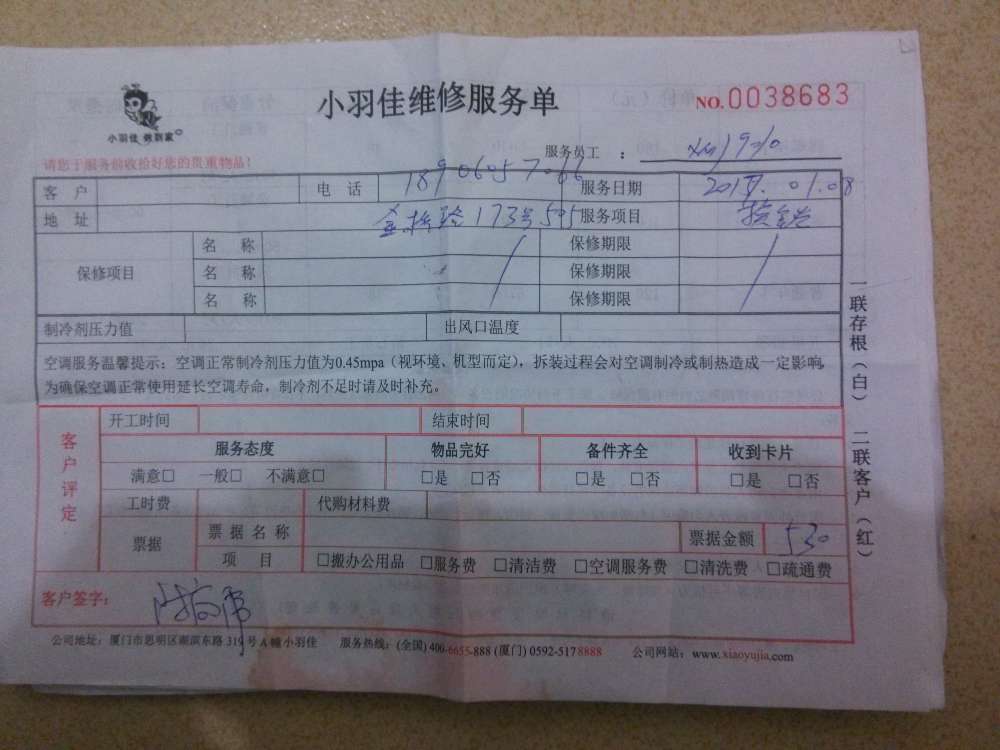 小羽佳维修服务单
NO.0038683
小羽佳 做到家
请您于服务前收捡好您的贵重物品!
服务员工 :
客户 电话 18906057066 服务日期 01.08
地址 173号 服务项目
保修项目 名称 保修期限
名称 保修期限
名称 保修期限
制冷剂压力值 出风口温度
空调服务温馨提示：空调正常制冷剂压力值为0.45mpa（视环境、机型而定），拆装过程会对空调制冷或制热造成一定影响，
为确保空调正常使用延长空调寿命，制冷剂不足时请及时补充。
客户评定 开工时间 结束时间
服务态度 物品完好 备件齐全 收到卡片
满意□ 一般□ 不满意□ □是 □否 □是 □否 □是 □否
工时费 代购材料费
票据 票据名称 票据金额 530
项目 □搬办公用品 □服务费 □清洁费 □空调服务费 □清洗费 □疏通费
客户签字：
公司地址：厦门市思明区湖滨东路319号A幢小羽佳 服务热线：(全国) 400-6655-888 (厦门) 0592-5178888 公司网站：www.xiaoyujia.com
一联存根（白） 二联客户（红）